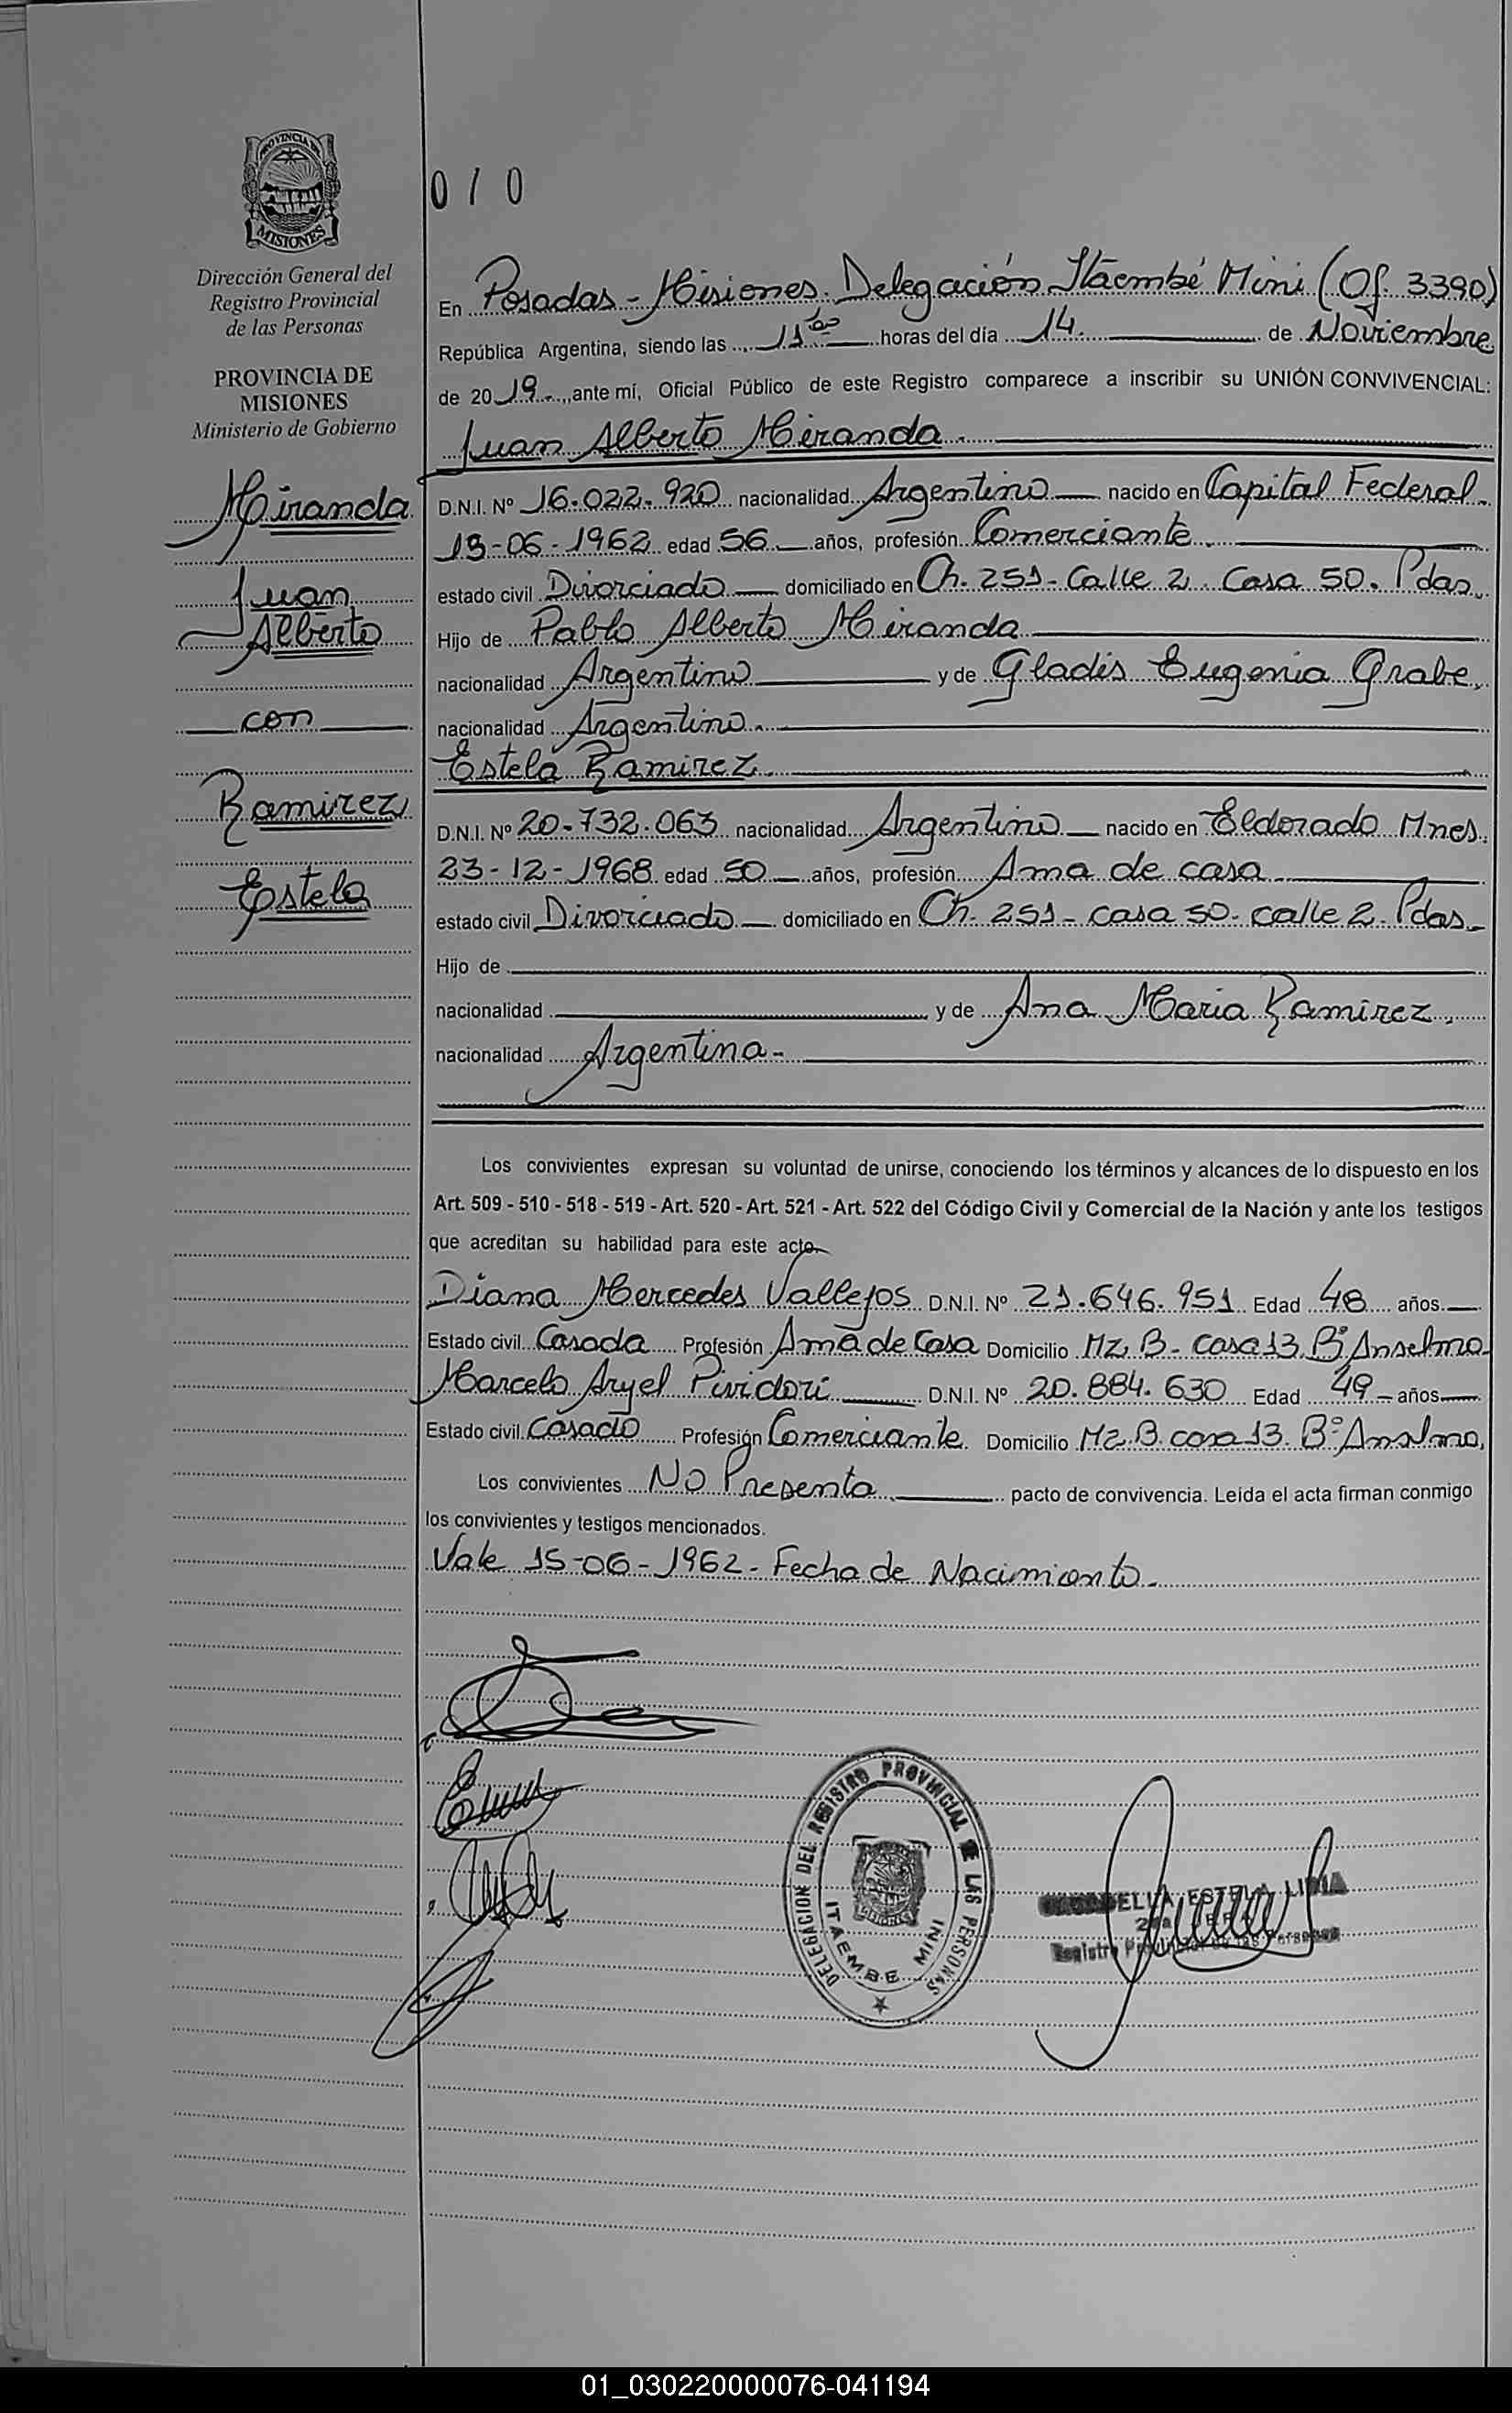 PROVINCIA DE
MISIONES
Dirección General del
Registro Provincial
de las Personas
PROVINCIA DE
MISIONES
Ministerio de Gobierno
Miranda
Juan
Alberto
con
Ramirez
Estela
010
En Posadas - Misiones. Delegación Itaembé Mini (Of. 3390)
República Argentina, siendo las 11⁰⁰ horas del día 14. de Noviembre
de 2019.-, ante mí, Oficial Público de este Registro comparece a inscribir su UNIÓN CONVIVENCIAL:
Juan Alberto Miranda.
D.N.I. Nº 16.022.920 nacionalidad Argentino nacido en Capital Federal
-06-1962 edad 56 años, profesión Comerciante
estado civil Divorciado domiciliado en Ch. 251- Calle 2. Casa 50. Pdas.
Hijo de Pablo Alberto Miranda
nacionalidad Argentino y de Gladis Eugenia Grabe,
nacionalidad Argentino.
Estela Ramirez.
D.N.I. Nº 20.732.063 nacionalidad Argentino nacido en Eldorado Mnes.
23-12-1968 edad 50 años, profesión Ama de casa
estado civil Divorciado domiciliado en Ch. 251- casa 50- calle 2. Pdas.
Hijo de
nacionalidad y de Ana Maria Ramirez,
nacionalidad Argentina-
Los convivientes expresan su voluntad de unirse, conociendo los términos y alcances de lo dispuesto en los
Art. 509 - 510 - 518 - 519 - Art. 520 - Art. 521 - Art. 522 del Código Civil y Comercial de la Nación y ante los testigos
que acreditan su habilidad para este acto
Diana Mercedes Vallejos D.N.I. Nº 21.646.951 Edad 48 años.
Estado civil Casada Profesión Ama de Casa Domicilio Mz. B- casa 13. Bº Anselmo
Marcelo Aryel Pividori D.N.I. Nº 20.884.630 Edad 49 años
Estado civil Casado Profesión Comerciante. Domicilio Mz. B. casa 13. Bº Anselmo,
Los convivientes No Presenta pacto de convivencia. Leída el acta firman conmigo
los convivientes y testigos mencionados.
Vale 15-06-1962- Fecha de Nacimiento.
DELEGACION DEL REGISTRO PROVINCIAL DE LAS PERSONAS
ITAEMBE MINI
ESTELA LIDIA
Registro Provincial de las Personas
01_030220000076-041194